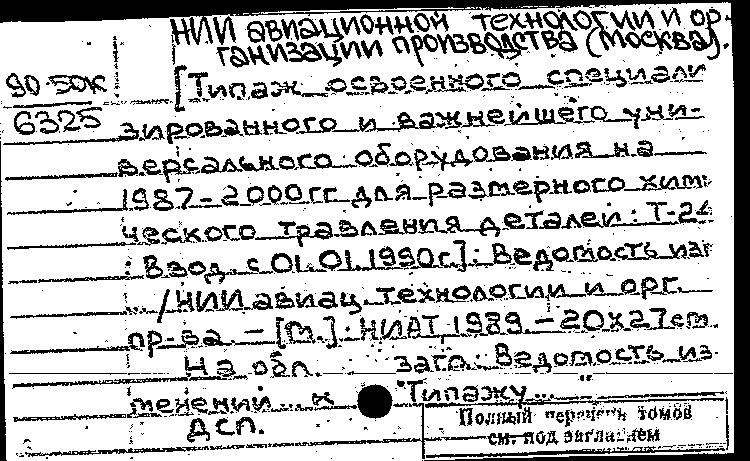 НИИ авиационной технологии и ор-
ганизации производства (Москва).
90-50к
[Типаж освоенного специали
6325
зированного и важнейшего уни-
версального оборудования на
1987-2000гг для размерного хими
ческого травления деталей: Т-24
: Ввод. с 01.01.1990г.]: Ведомость изм
... /НИИ авиац. технологии и орг.
пр-ва. – [М.]: НИАТ 1989. – 20х27см.
На обл. загл.: Ведомость из-
менений ... к "Типажу... "
ДСП.
Полный перечень томов
см. под заглавием